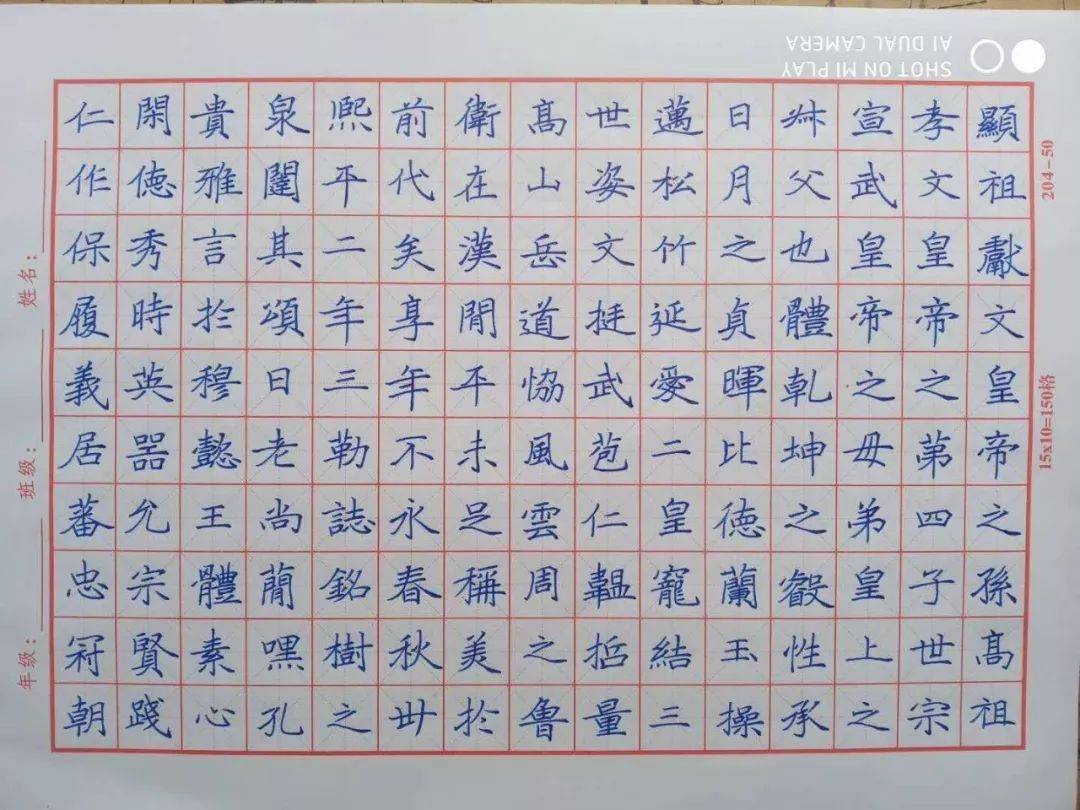 顯祖獻文皇帝之孫髙祖
孝文皇帝之第四子世宗
宣武皇帝之母弟皇上之
叔父也體乹坤之叡性承
日月之貞暉比徳蘭玉操
邁松竹延愛二皇寵結三
世姿文挺武苞仁韞哲量
髙山岳道恊風雲周之魯
衛在漢閒平未足稱美於
前代矣享年不永春秋卅
熙平二年三勒誌銘樹之
泉闥其頌曰老尚蕳嘿孔
貴雅言於穆懿王體素心
閑徳秀時英器允宗賢踐
仁作保履義居蕃忠冠朝
204-50
15x10=150格
年级:
班级:
姓名:
SHOT ON MI PLAY
AI DUAL CAMERA